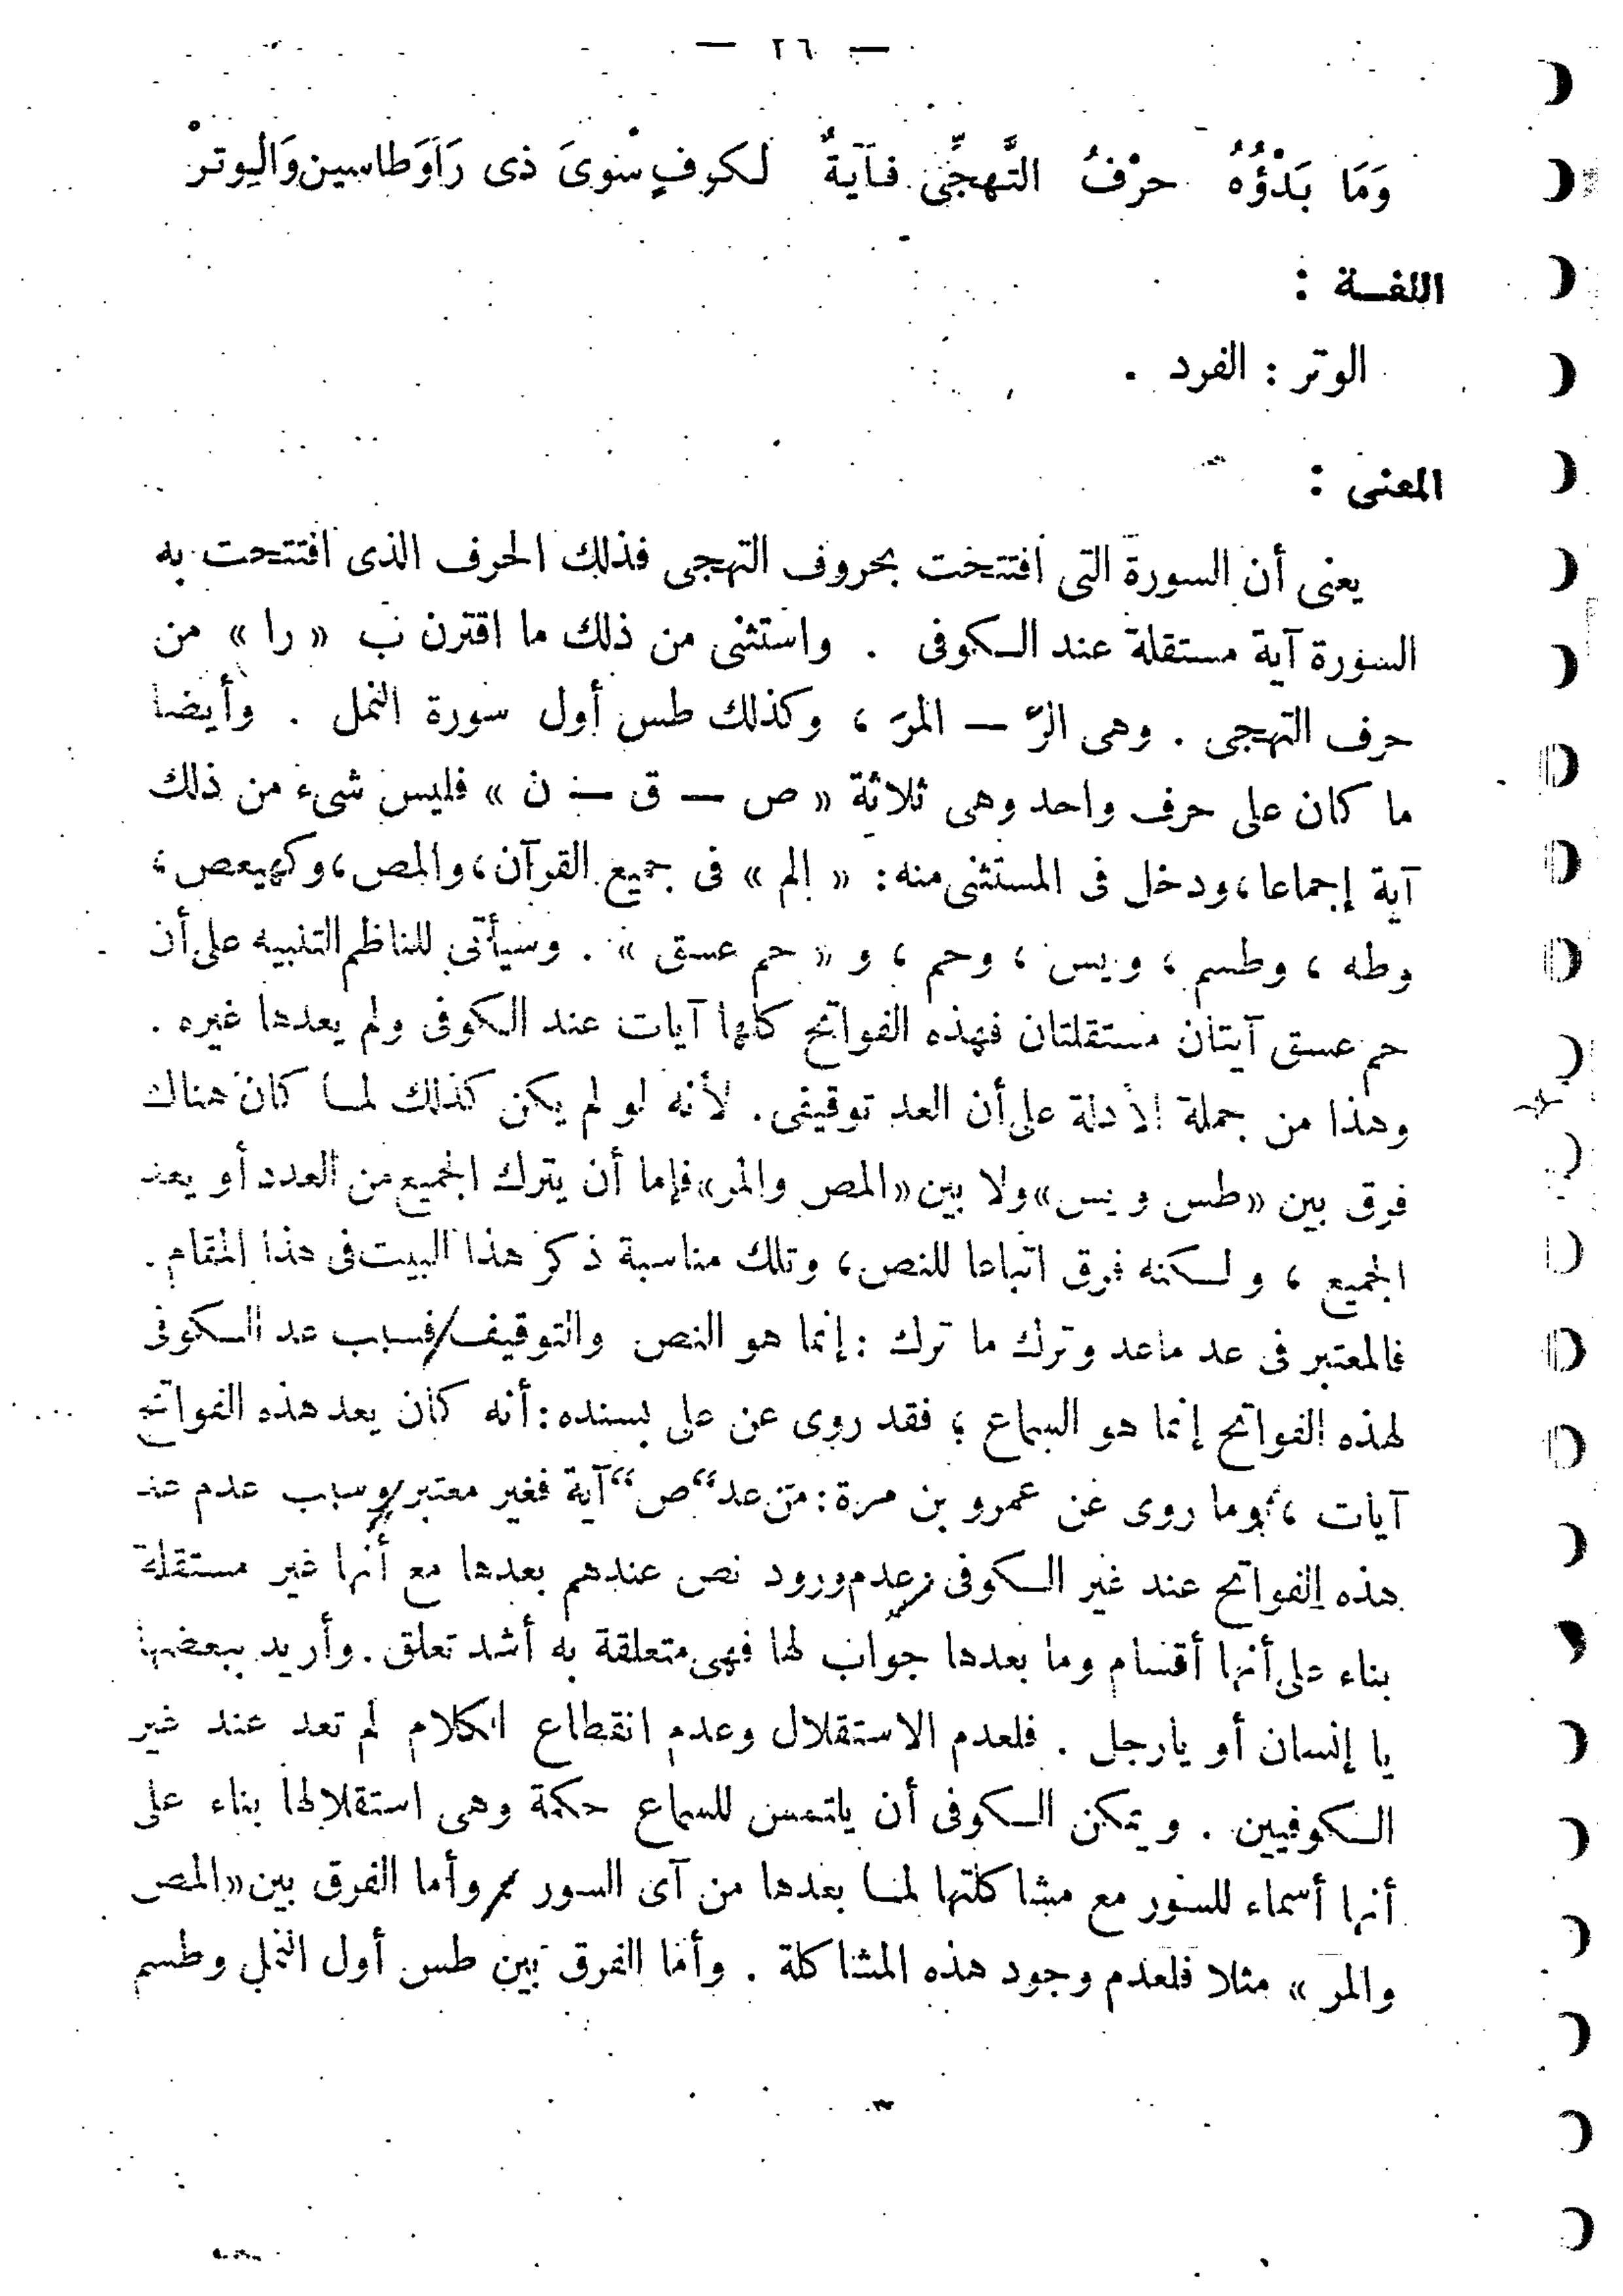 — ٢٦ —
وَمَا بَدْؤُهُ حرْفُ التَّهجِّى فآيَةٌ لكوفٍ سْوىَ ذى رَاوَطاسين وَالْوترْ
اللغة :
الوتر : الفرد .
المعنى :
يعنى أن السورة التى افتتحت بحروف التهجى فذلك الحرف الذى افتتحت به
السورة آية مستقلة عند الكوفى . واستثنى من ذلك ما اقترن ب « را » من
حرف التهجى . وهى الرَ — المرَ ، وكذلك طس أول سورة النمل . وأيضا
ما كان على حرف واحد وهى ثلاثة « ص — ق — ن » فليس شىء من ذلك
آية إجماعا ، ودخل فى المستثنى منه : « الم » فى جميع القرآن ، والمص ، وكهيعص ،
وطه ، وطسم ، ويس ، وحم ، و « حم عسق » . وسيأتى للناظم التنبيه على أن
حم عسق آيتان مستقلتان فهذه الفواتح كلها آيات عند الكوفى ولم يعدها غيره .
وهذا من جملة الأدلة على أن العد توقيفى . لأنه لو لم يكن كذلك لما كان هناك
فرق بين « طس ويس » ولا بين « المص والمر » فإما أن يترك الجميع من العدد أو يعد
الجميع ، ولكنه فرق اتباعا للنص ، وتلك مناسبة ذكر هذا البيت فى هذا المقام .
فالمعتبر فى عد ماعد وترك ما ترك : إنما هو النص والتوقيف فسبب عد الكوفى
لهذه الفواتح إنما هو السماع ؛ فقد روى عن على بسنده : أنه كان يعد هذه الفواتح
آيات ، وما روى عن عمرو بن مرة : من عد “ص“ آية فغير معتبر وسبب عدم عد
هذه الفواتح عند غير الكوفى عدم ورود نص عندهم بعدها مع أنها غير مستقلة
بناء على أنها أقسام وما بعدها جواب لها فهى متعلقة به أشد تعلق . وأريد ببعضها
يا إنسان أو يارجل . فلعدم الاستقلال وعدم انقطاع الكلام لم تعد عند غير
الكوفيين . ويمكن الكوفى أن يلتمس للسماع حكمة وهى استقلالها بناء على
أنها أسماء للسور مع مشاكلتها لما بعدها من آى السور وأما الفرق بين « المص
والمر » مثلا فلعدم وجود هذه المشاكلة . وأما الفرق بين طس أول النمل وطسم